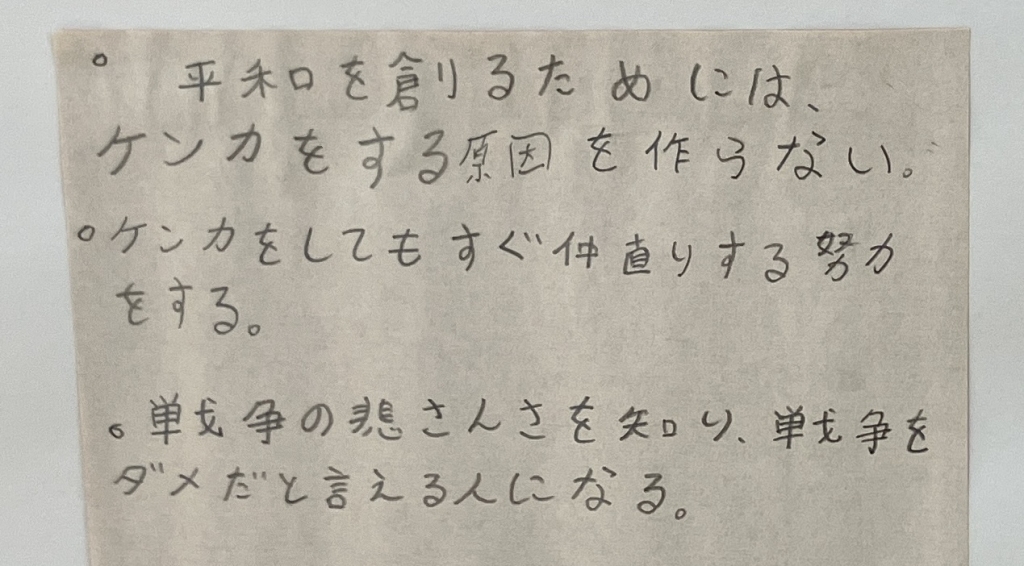 。平和を創りるためには、
ケンカをする原因を作らない。
。ケンカをしてもすぐ仲直りする努力
をする。
。戦争の悲さんさを知り、戦争を
ダメだと言える人になる。